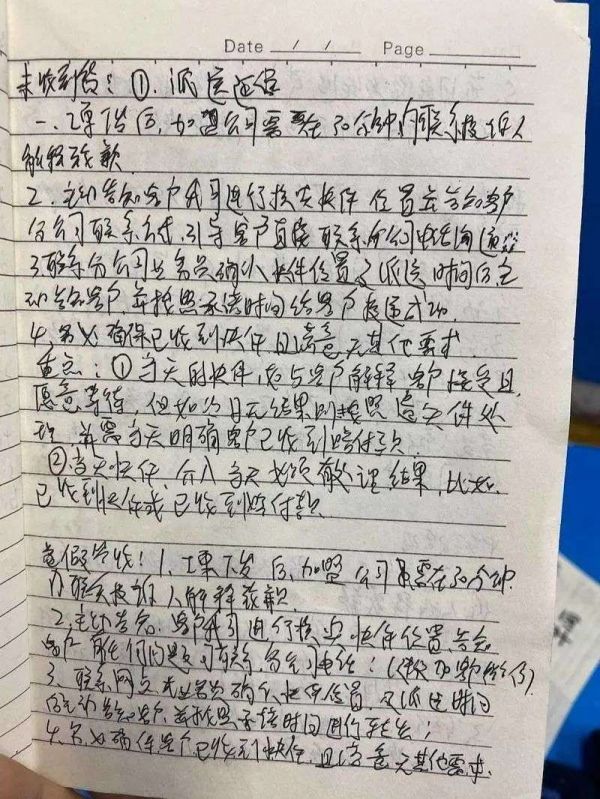 Date / / Page
未收到货：①，派送延误
一、工单下发后，加盟公司需要在30分钟内联系投诉人
解释致歉
2．主动告知客户我司进行核实快件位置并告知客户
分公司联系方式，引导客户直接联系分公司电话沟通
3联系分公司业务员确认快件位置及派送时间后主
动告知客户，并按照承诺时间给客户投递成功
4，务必确保已收到快件且满意无其他要求
重点：①当天的快件，起与客户解释，客户接受且
愿意等待，但如次日无结果则按照遗失件处
理，并需当天明确客户已收到赔付款
②当天快件，介入当天必须敲定结果，比如
已收到快件或已收到赔付款
虚假签收！1、工单下发后，加盟公司需在30分钟
内联系投诉人解释致歉
2，主动告知客户我司进行核实快件位置，告知
客户有任何问题可联系分公司电话：
3．联系网点业务员确认快件位置，及派送时间
后主动告知客户，并按照承诺时间进行转出；
4．务必确保客户已收到快件，且满意无其他需求．